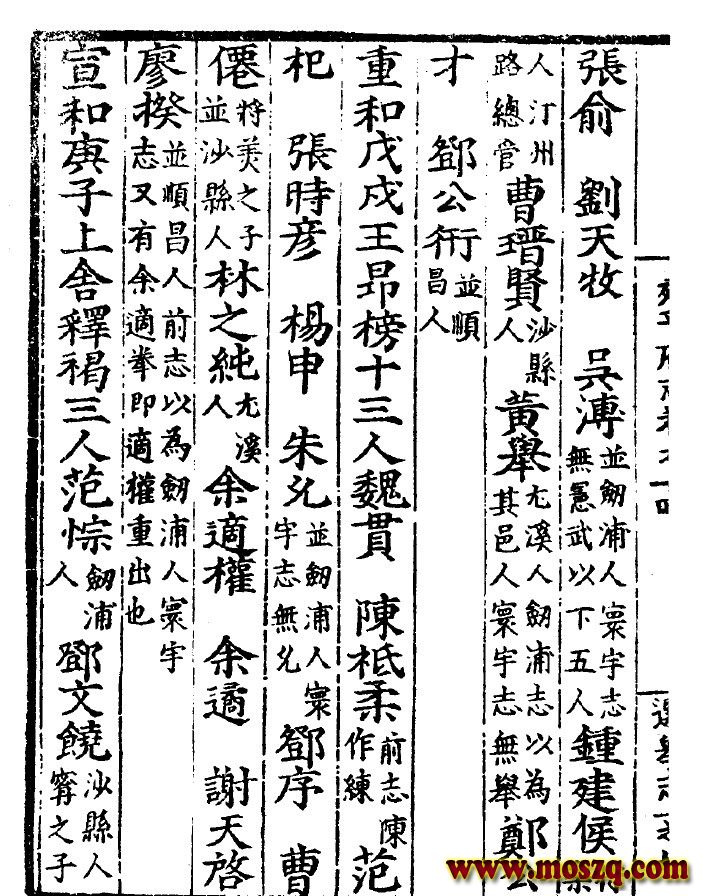 張俞 劉天牧 吳漙 並劒浦人寰宇志無憲武以下五人 鍾建侯
人汀州路總管 曹瑨賢 沙縣人 黃舉 尤溪人劒浦志以為其邑人寰宇志無舉 鄭公
才 鄧公衎 並順昌人
重和戊戌王昂榜十三人魏貫 陳祗柔 前志陳作練 范
杞 張時彥 楊申 朱允 並劒浦人寰宇志無允 鄧序 曹
僊 將美之子並沙縣人 林之純 尤溪人 余適權 余遹 謝天啓
廖揆 並順昌人前志以為劒浦人寰宇志又有余適拳即適權重出也
宣和庚子上舍釋褐三人范悰 劒浦人 鄧文饒 沙縣人甯之子
www.moszq.com